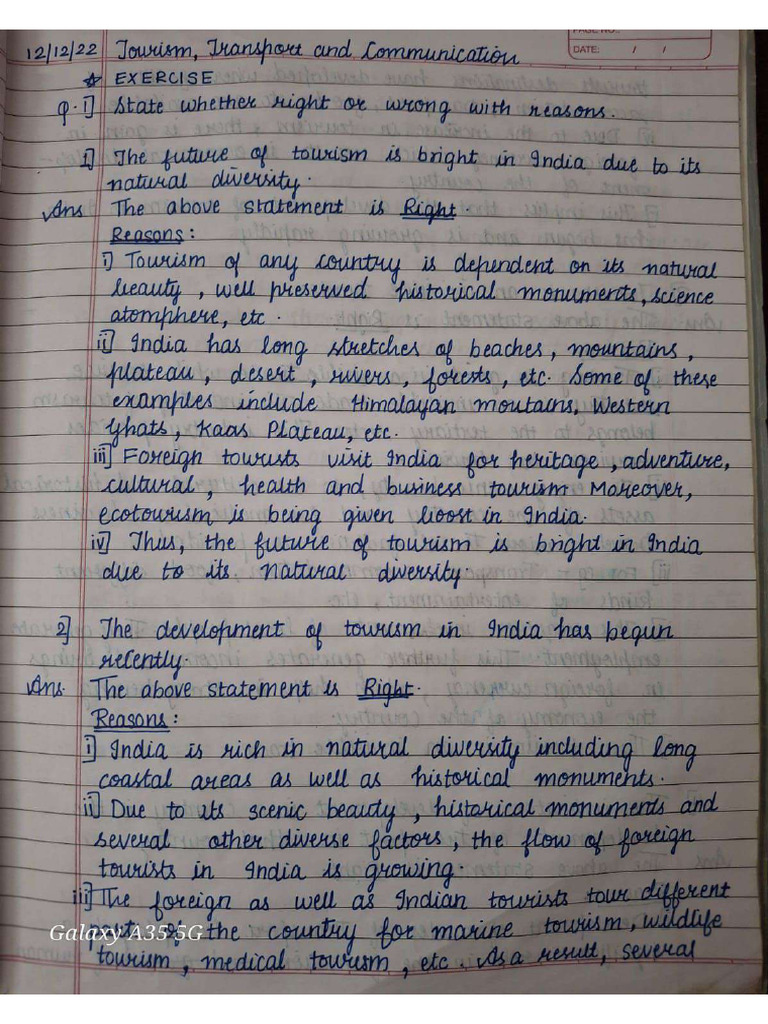 PAGE NO.:
DATE: / /
12/12/22 Tourism, Transport and Communication
☆ EXERCISE
Q.1] State whether right or wrong with reasons.
1] The future of tourism is bright in India due to its
natural diversity.
Ans The above statement is Right.
Reasons:
i] Tourism of any country is dependent on its natural
beauty, well preserved historical monuments, science
atomphere, etc.
ii] India has long stretches of beaches, mountains,
plateau, desert, rivers, forests, etc. Some of these
examples include Himalayan moutains, Western
ghats, Kaas Plateau, etc.
iii] Foreign tourists visit India for heritage, adventure,
cultural, health and business tourism Moreover,
ecotourism is being given boost in India.
iv] Thus, the future of tourism is bright in India
due to its natural diversity.
2] The development of tourism in India has begun
recently.
Ans. The above statement is Right.
Reasons:
i] India is rich in natural diversity including long
coastal areas as well as historical monuments.
ii] Due to its scenic beauty, historical monuments and
several other diverse factors, the flow of foreign
tourists in India is growing.
iii] The foreign as well as Indian tourists tour different
parts of the country for marine tourism, wildlife
tourism, medical tourism, etc. As a result, several
Galaxy A35 5G